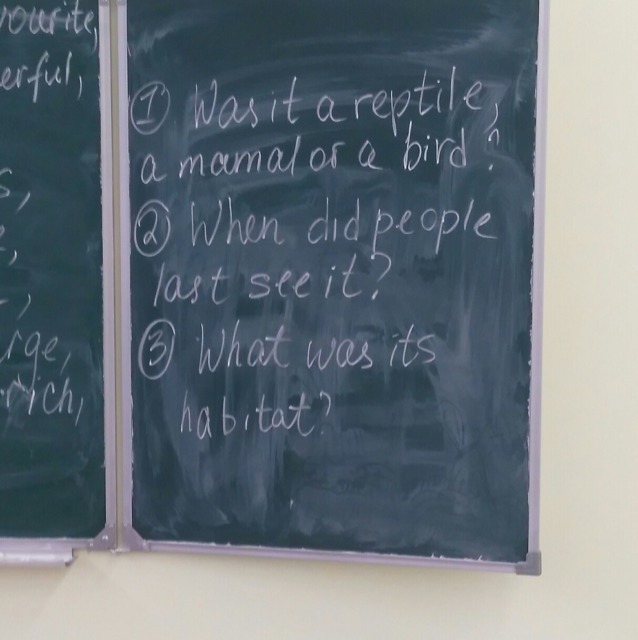 ① Was it a reptile,
a mamal or a bird?
② When did people
last see it?
③ What was its
habitat?